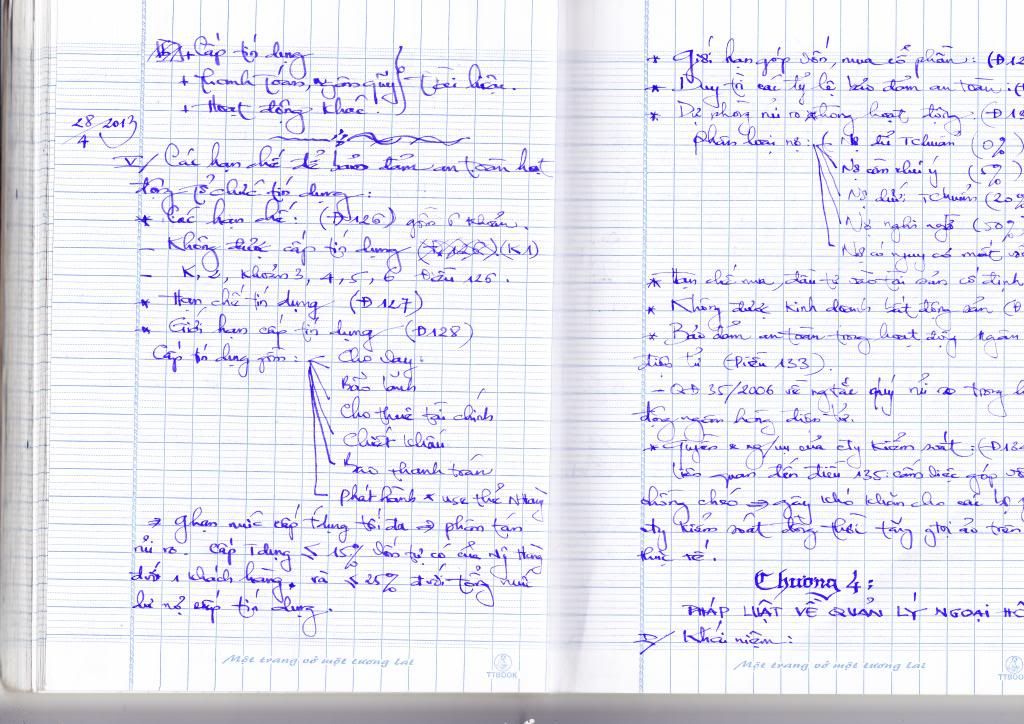 + Cấp tín dụng
+ Thanh toán, ngân quỹ
+ Hoạt động khác.
28/4 2013
V/ Các hạn chế để bảo đảm an toàn hoạt
động tổ chức tín dụng:
* Các hạn chế: (Đ126) gồm 6 khoản.
- Không được cấp tín dụng (K1)
- K, 2, khoản 3, 4, 5, 6 Điều 126.
* Hạn chế tín dụng (Đ127)
* Giới hạn cấp tín dụng (Đ128)
Cấp tín dụng gồm: Cho vay:
Bảo lãnh
Cho thuê tài chính
Chiết khấu
Bao thanh toán
phát hành * use thẻ NHàng
→ ghạn mức cấp tdụng tối đa → phân tán
rủi ro. Cấp Tdụng ≤ 15% vốn tự có của Ng Hàng
đvới 1 khách hàng, và ≤ 25% đ với tổng mức
dư nợ cấp tín dụng.
Một trang vở một tương lai
TTBOOK
* Giới hạn góp vốn, mua cổ phần: (Đ12
* Duy trì các tỷ lệ bảo đảm an toàn:
* Dự phòng rủi ro trong hoạt động: (Đ13
phân loại nợ: Nợ đủ Tchuẩn (0%
Nợ cần chú ý (5%)
Nợ dưới Tchuẩn (20%
Nợ nghi ngờ (50%
Nợ có nguy cơ mất vố
* Hạn chế mua, đầu tư vào tài sản cố định
* Không được kinh doanh bất động sản (Đ
* Bảo đảm an toàn trong hoạt động Ngân
điện tử (Điều 133).
- QĐ 35/2006 về ng tắc quý rủi ro trong h
động ngân hàng điện tử.
* Quyền * ng/vụ của cty kiểm soát: (Đ134
liên quan đến điều 135: cấm việc góp vố
chồng chéo → gây khó khăn cho các
cty kiểm soát đồng thời tăng ảo trên
thực tế.
Chương 4:
PHÁP LUẬT VỀ QUẢN LÝ NGOẠI HỐ
I/ Khái niệm:
Một trang vở một tương lai
TTB